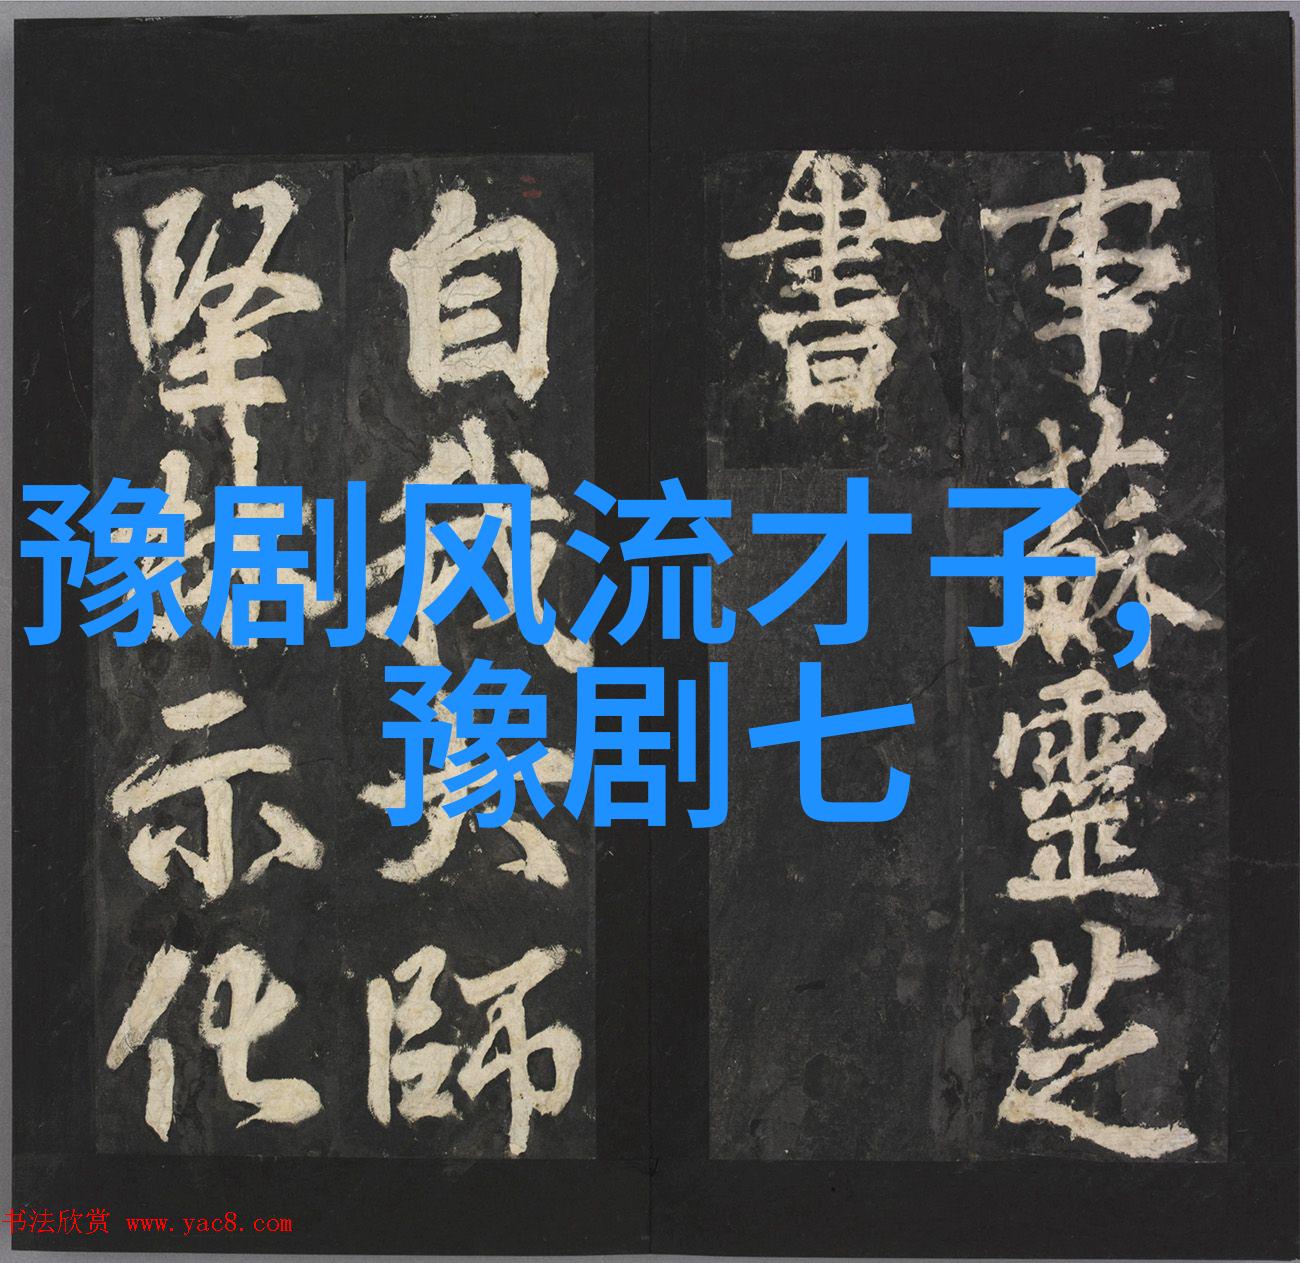 事蘇靈芝
書
自我大師
堅林示化
豫剧风流才子，
豫剧七
书法欣赏 www.yac8.com